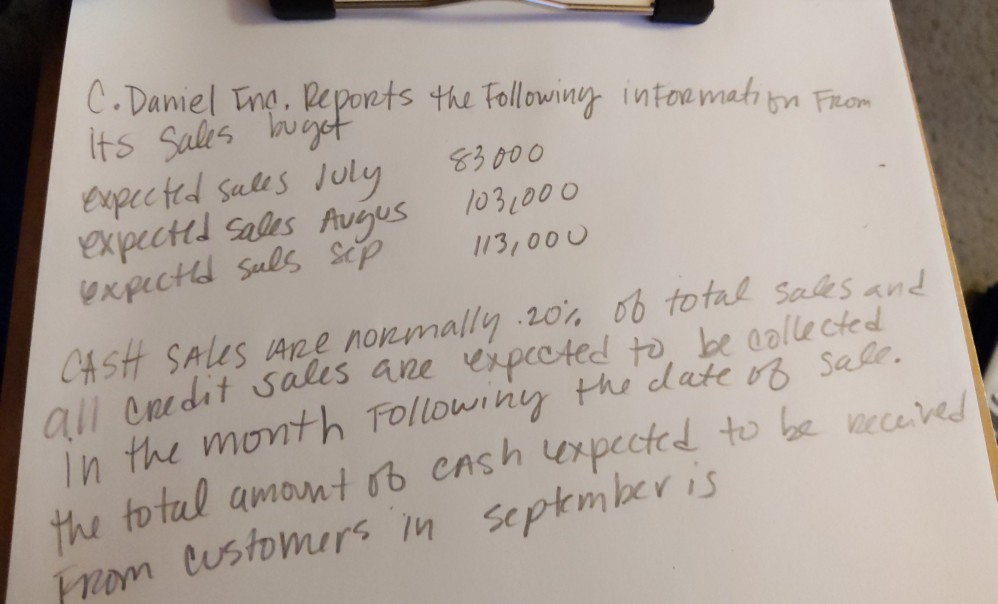 C. Daniel Inc. Reports the Following information From
its Sales buget
expected sales July 83000
expected Sales Augus 103,000
expected sals Sep 113,000
CASH SALES ARE normally .20% of total sales and
all credit sales are expected to be collected
In the month Following the date of sale.
the total amount of cash expected to be received
From customers in september is